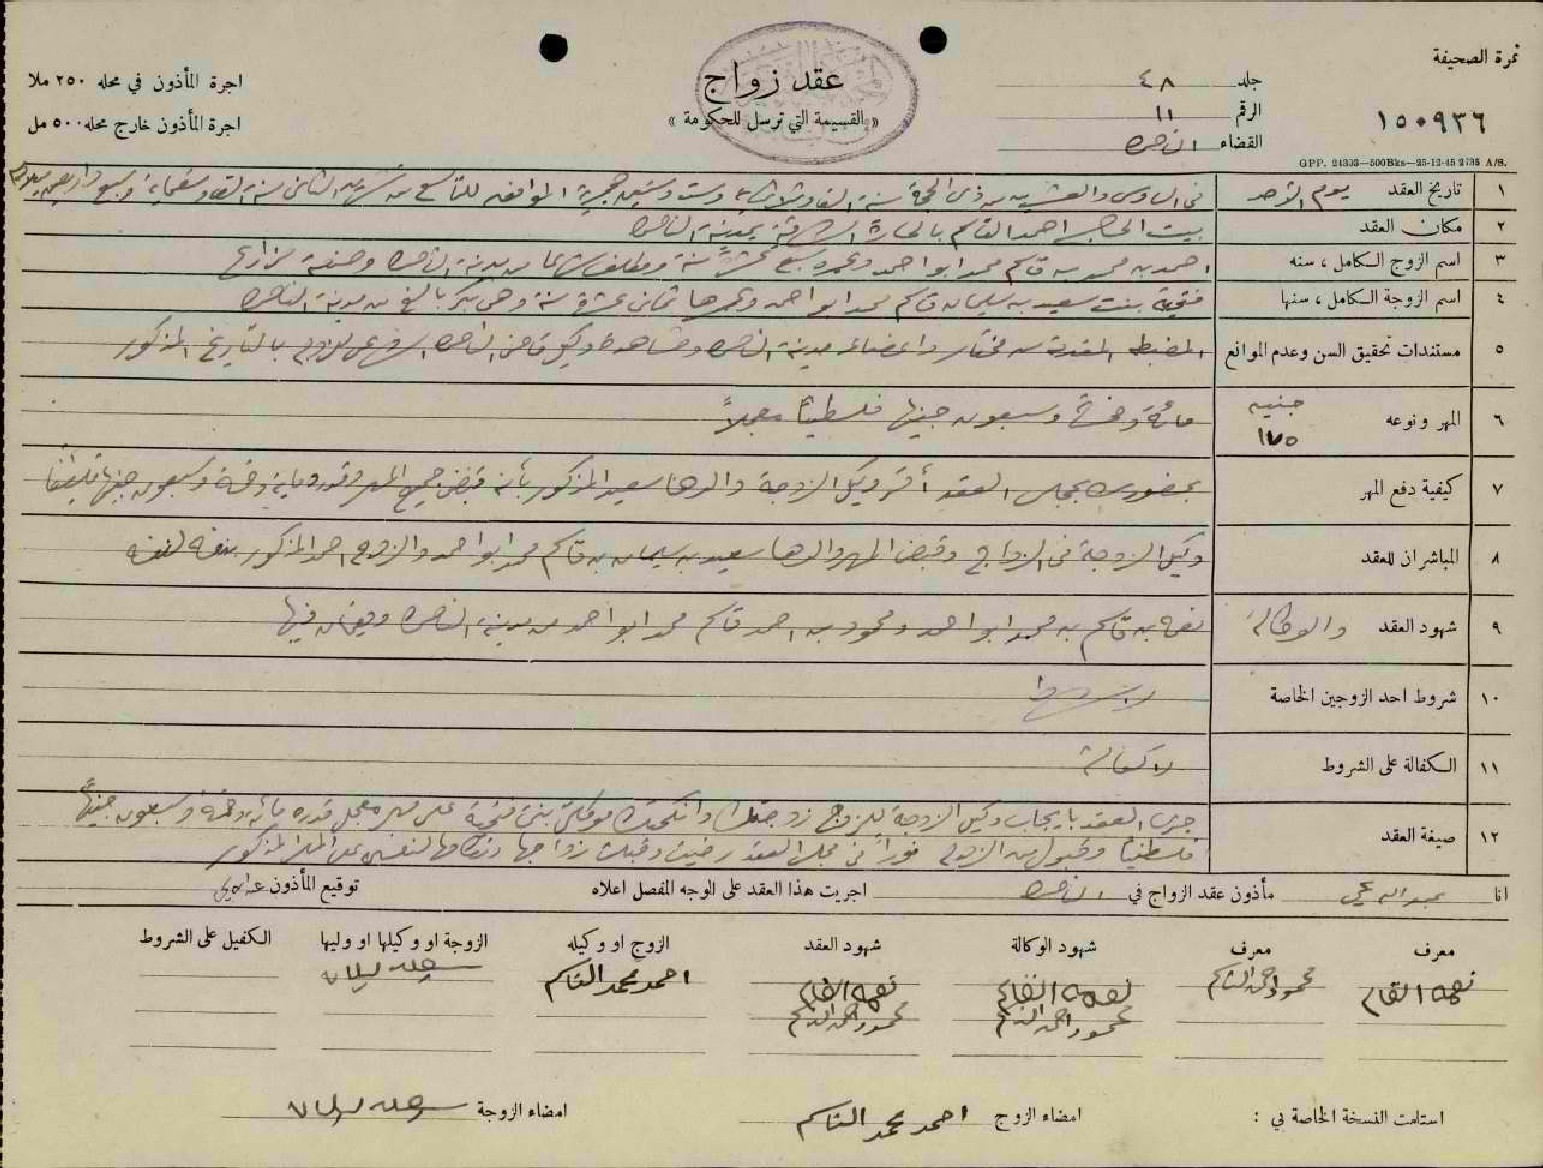 نمرة الصحيفة
١٥٠٩٣٦
G.P.P. 24303—500 Bks—25-12-45 2/35 A/S.
جلد ٤٨
الرقم ١١
القضاء الناصرة
عقد زواج
« القسيمة التي ترسل للحكومة »
اجرة المأذون في محله ٢٥٠ ملا
اجرة المأذون خارج محله ٥٠٠ مل
١ تاريخ العقد يوم الاحد في السادس والعشرين من ذي الحجة سنة الف وثلاثماية وست وستين هجرية الموافق للتاسع من تشرين الثاني سنة الف وتسعماية وسبع واربعين ميلادية
٢ مكان العقد بيت الحاج احمد القاسم بالحارة الشرقية بمدينة الناصرة
٣ اسم الزوج الكامل ، سنه احمد بن محمد بن قاسم محمد ابو احمد وعمره سبع عشرة سنة من مدينة الناصرة وصنعته مزارع
٤ اسم الزوجة الكامل ، سنها فتحية بنت سعيد بن سليمان قاسم محمد ابو احمد وعمرها ثماني عشرة سنة وهي بكر بالغ من مدينة الناصرة
٥ مستندات تحقيق السن وعدم الموانع المضبطة المقدمة من مختار واعضاء مدينة الناصرة قاضي الناصرة الشرعي بالتاريخ المذكور
٦ المهر ونوعه جنيه ١٧٥ مائة وخمسة وسبعون جنيها فلسطينيا معجلاً
٧ كيفية دفع المهر بحضوره بمجلس العقد أقر وكيل الزوجة والدها سعيد المذكور بأنه قبض جميع المهر وقدره ماية وخمسة وسبعون جنيها فلسطينيا
٨ المباشران للعقد وكيل الزوجة في الزواج وقبض المهر والدها سعيد بن سليمان بن قاسم محمد ابو احمد والزوج احمد المذكور بنفسه لنفسه
٩ شهود العقد والوكالة بن قاسم بن محمد ابو احمد ومحمود بن احمد قاسم محمد ابو احمد من مدينة الناصرة فيها
١٠ شروط احد الزوجين الخاصة لا شروط
١١ الكفالة على الشروط لا كفالة
١٢ صيغة العقد جرى العقد بايجاب وكيل الزوجة للزوج زوجتك وانكحتك موكلتي بنتي فتحية على مهر معجل قدره ماية وخمسة وسبعون جنيهاً
فلسطينيا وقبول من الزوج فوراً في مجلس العقد رضيت وقبلت زواجها ونكاحها لنفسي على المهر المذكور
انا مأذون عقد الزواج في الناصرة اجريت هذا العقد على الوجه المفصل اعلاه توقيع المأذون
معرف معرف شهود الوكالة شهود العقد الزوج او وكيله الزوجة او وكيلها او وليها الكفيل على الشروط
احمد محمد القاسم سعيد سليمان
استلمت النسخة الخاصة بي : امضاء الزوج احمد محمد القاسم امضاء الزوجة سعيد سليمان